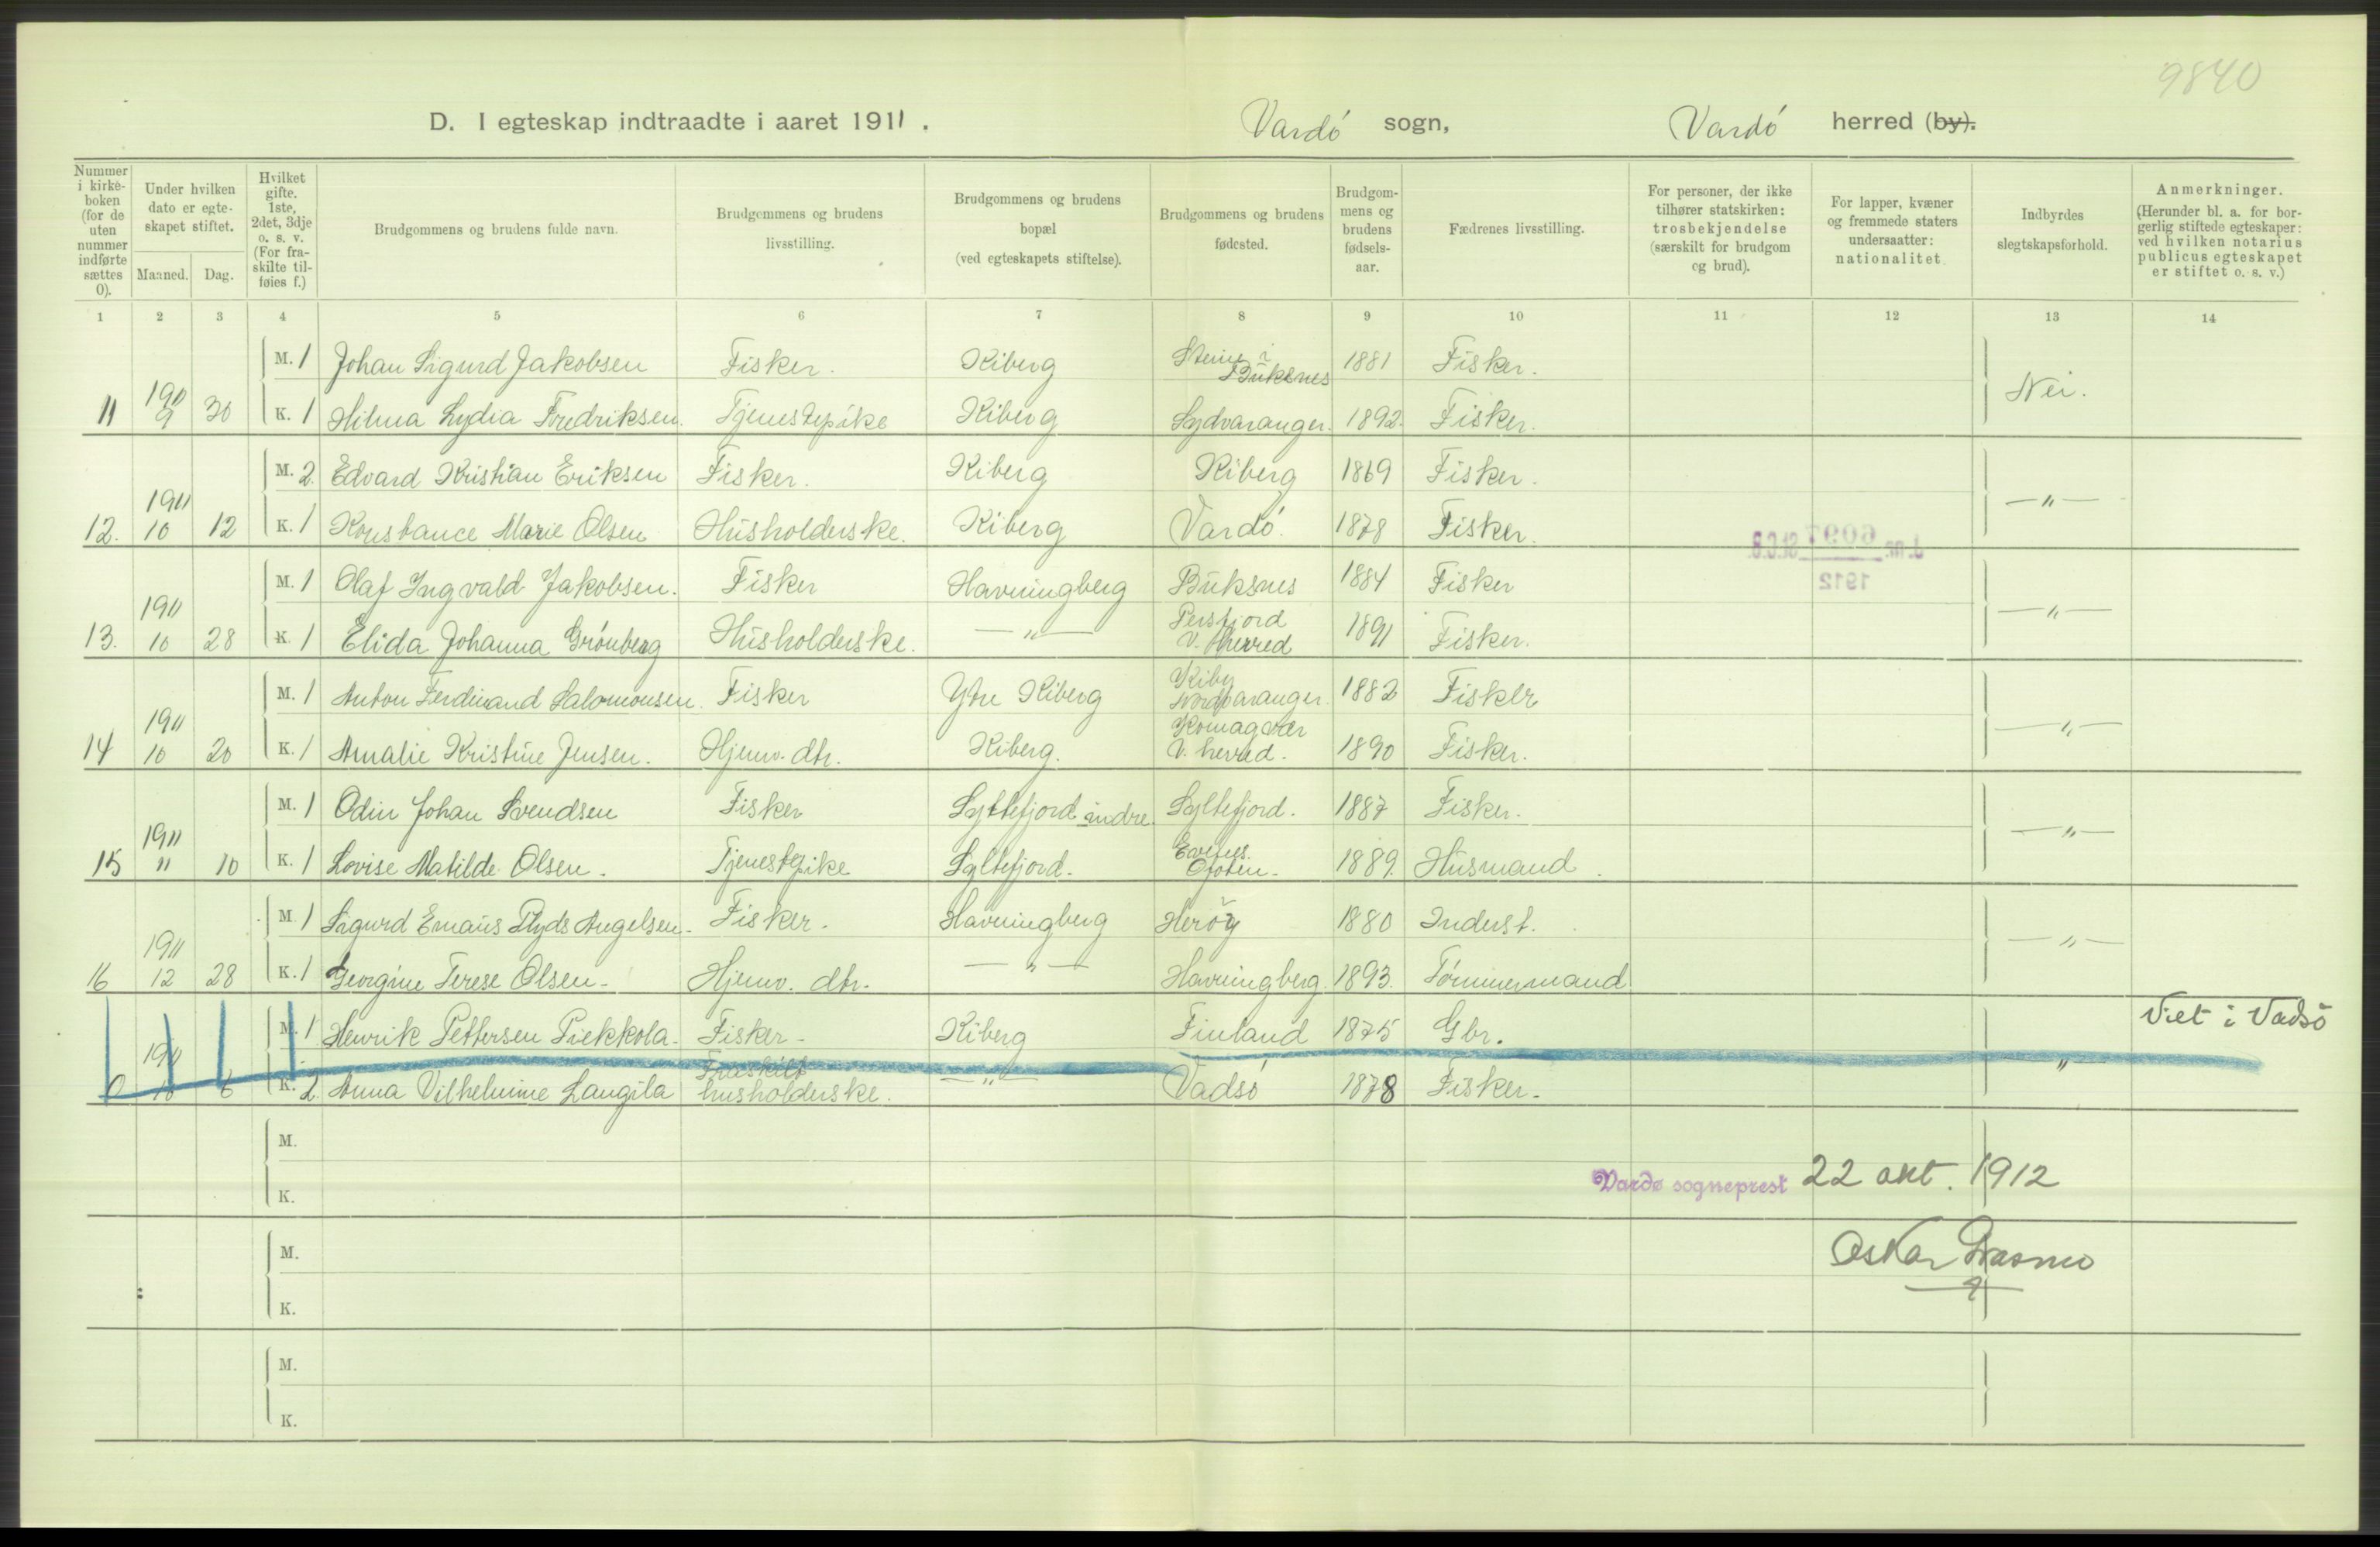 9840
D. I egteskap indtraadte i aaret 1911. Vardö sogn, Vardö herred (by).
Nummer i kirke-boken (for de uten nummer indførte sættes 0).
Under hvilken dato er egte-skapet stiftet.
Maaned. Dag.
Hvilket gifte. 1ste, 2det, 3dje o. s. v. (For fra-skilte til-føies f.)
Brudgommens og brudens fulde navn.
Brudgommens og brudens livsstilling.
Brudgommens og brudens bopæl (ved egteskapets stiftelse).
Brudgommens og brudens fødested.
Brudgom-mens og brudens fødsels-aar.
Fædrenes livsstilling.
For personer, der ikke tilhører statskirken: trosbekjendelse (særskilt for brudgom og brud).
For lapper, kvæner og fremmede staters undersaatter: nationalitet
Indbyrdes slegtskapsforhold.
Anmerkninger. (Herunder bl. a. for bor-gerlig stiftede egteskaper: ved hvilken notarius publicus egteskapet er stiftet o. s. v.)
1 2 3 4 5 6 7 8 9 10 11 12 13 14
M. 1 Johan Sigurd Jakobsen Fisker. Kiberg Steine i Buksnes 1881 Fisker.
11 1911 9 30 K. 1 Hilma Lydia Fredriksen. Tjenestepike Kiberg Sydvaranger. 1892. Fisker. Nei.
M. 2. Edvard Kristian Eriksen Fisker. Kiberg Kiberg 1869 Fisker.
12. 1911 10 12 K. 1 Konstance Marie Olsen Husholderske. Kiberg Vardö. 1878 Fisker. — " —
J.nr. 6097 St.C.B. 1912
M. 1 Olaf Ingvald Jakobsen. Fisker Havningberg Buksnes 1884 Fisker
13. 1911 10 28 K. 1 Elida Johanna Grönberg Husholderske. — " — Persfjord V. herred 1891 Fisker. — " —
M. 1 Anton Ferdinand Salomonsen. Fisker Ytre Kiberg Kiby Nordvaranger. 1882 Fisker
14 1911 10 20 K. 1 Amalie Kristine Jensen. Hjemv. dtr. Kiberg. Komagvær V. herred. 1890 Fisker. — " —
M. 1 Odin Johan Svendsen Fisker Syltefjord indre. Syltefjord. 1887 Fisker.
15 1911 11 10 K. 1 Lovise Matilde Olsen. Tjenestepike Syltefjord. Ofoten. 1889. Husmand. — " —
M. 1 Sigurd Emaus Angelsen. Fisker. Havningberg Heröy 1880 Inderst.
16 1911 12 28 K. 1 Georgine Terese Olsen. Hjemv. dtr. — " — Havningberg. 1893. Tömmermand — " —
M. 1 Henrik Pettersen Piekkola. Fisker Kiberg Finland 1875 Gbr. Viet i Vadsö
0 1911 10 6 K. 2. Anna Vilhelmine Langila Fraskilt husholderske. — " — Vadsö 1878 Fisker. "
M.
K.
Vardø sogneprest 22 okt. 1912
M.
Oskar
K.
M.
K.